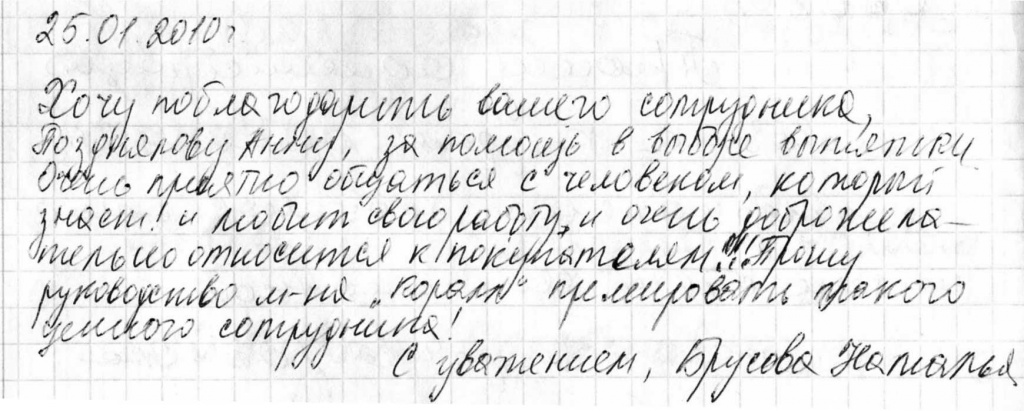 25.01.2010г.
Хочу поблагодарить вашего сотрудника,
Позднякову Анну, за помощь в выборе вытяжки
Очень приятно общаться с человеком, который
знает! и любит свою работу, и очень доброжела-
тельно относится к покупателям!!! Прошу
руководство м-на „Коралл" премировать такого
ценного сотрудника!
С уважением, Брусова Наталья